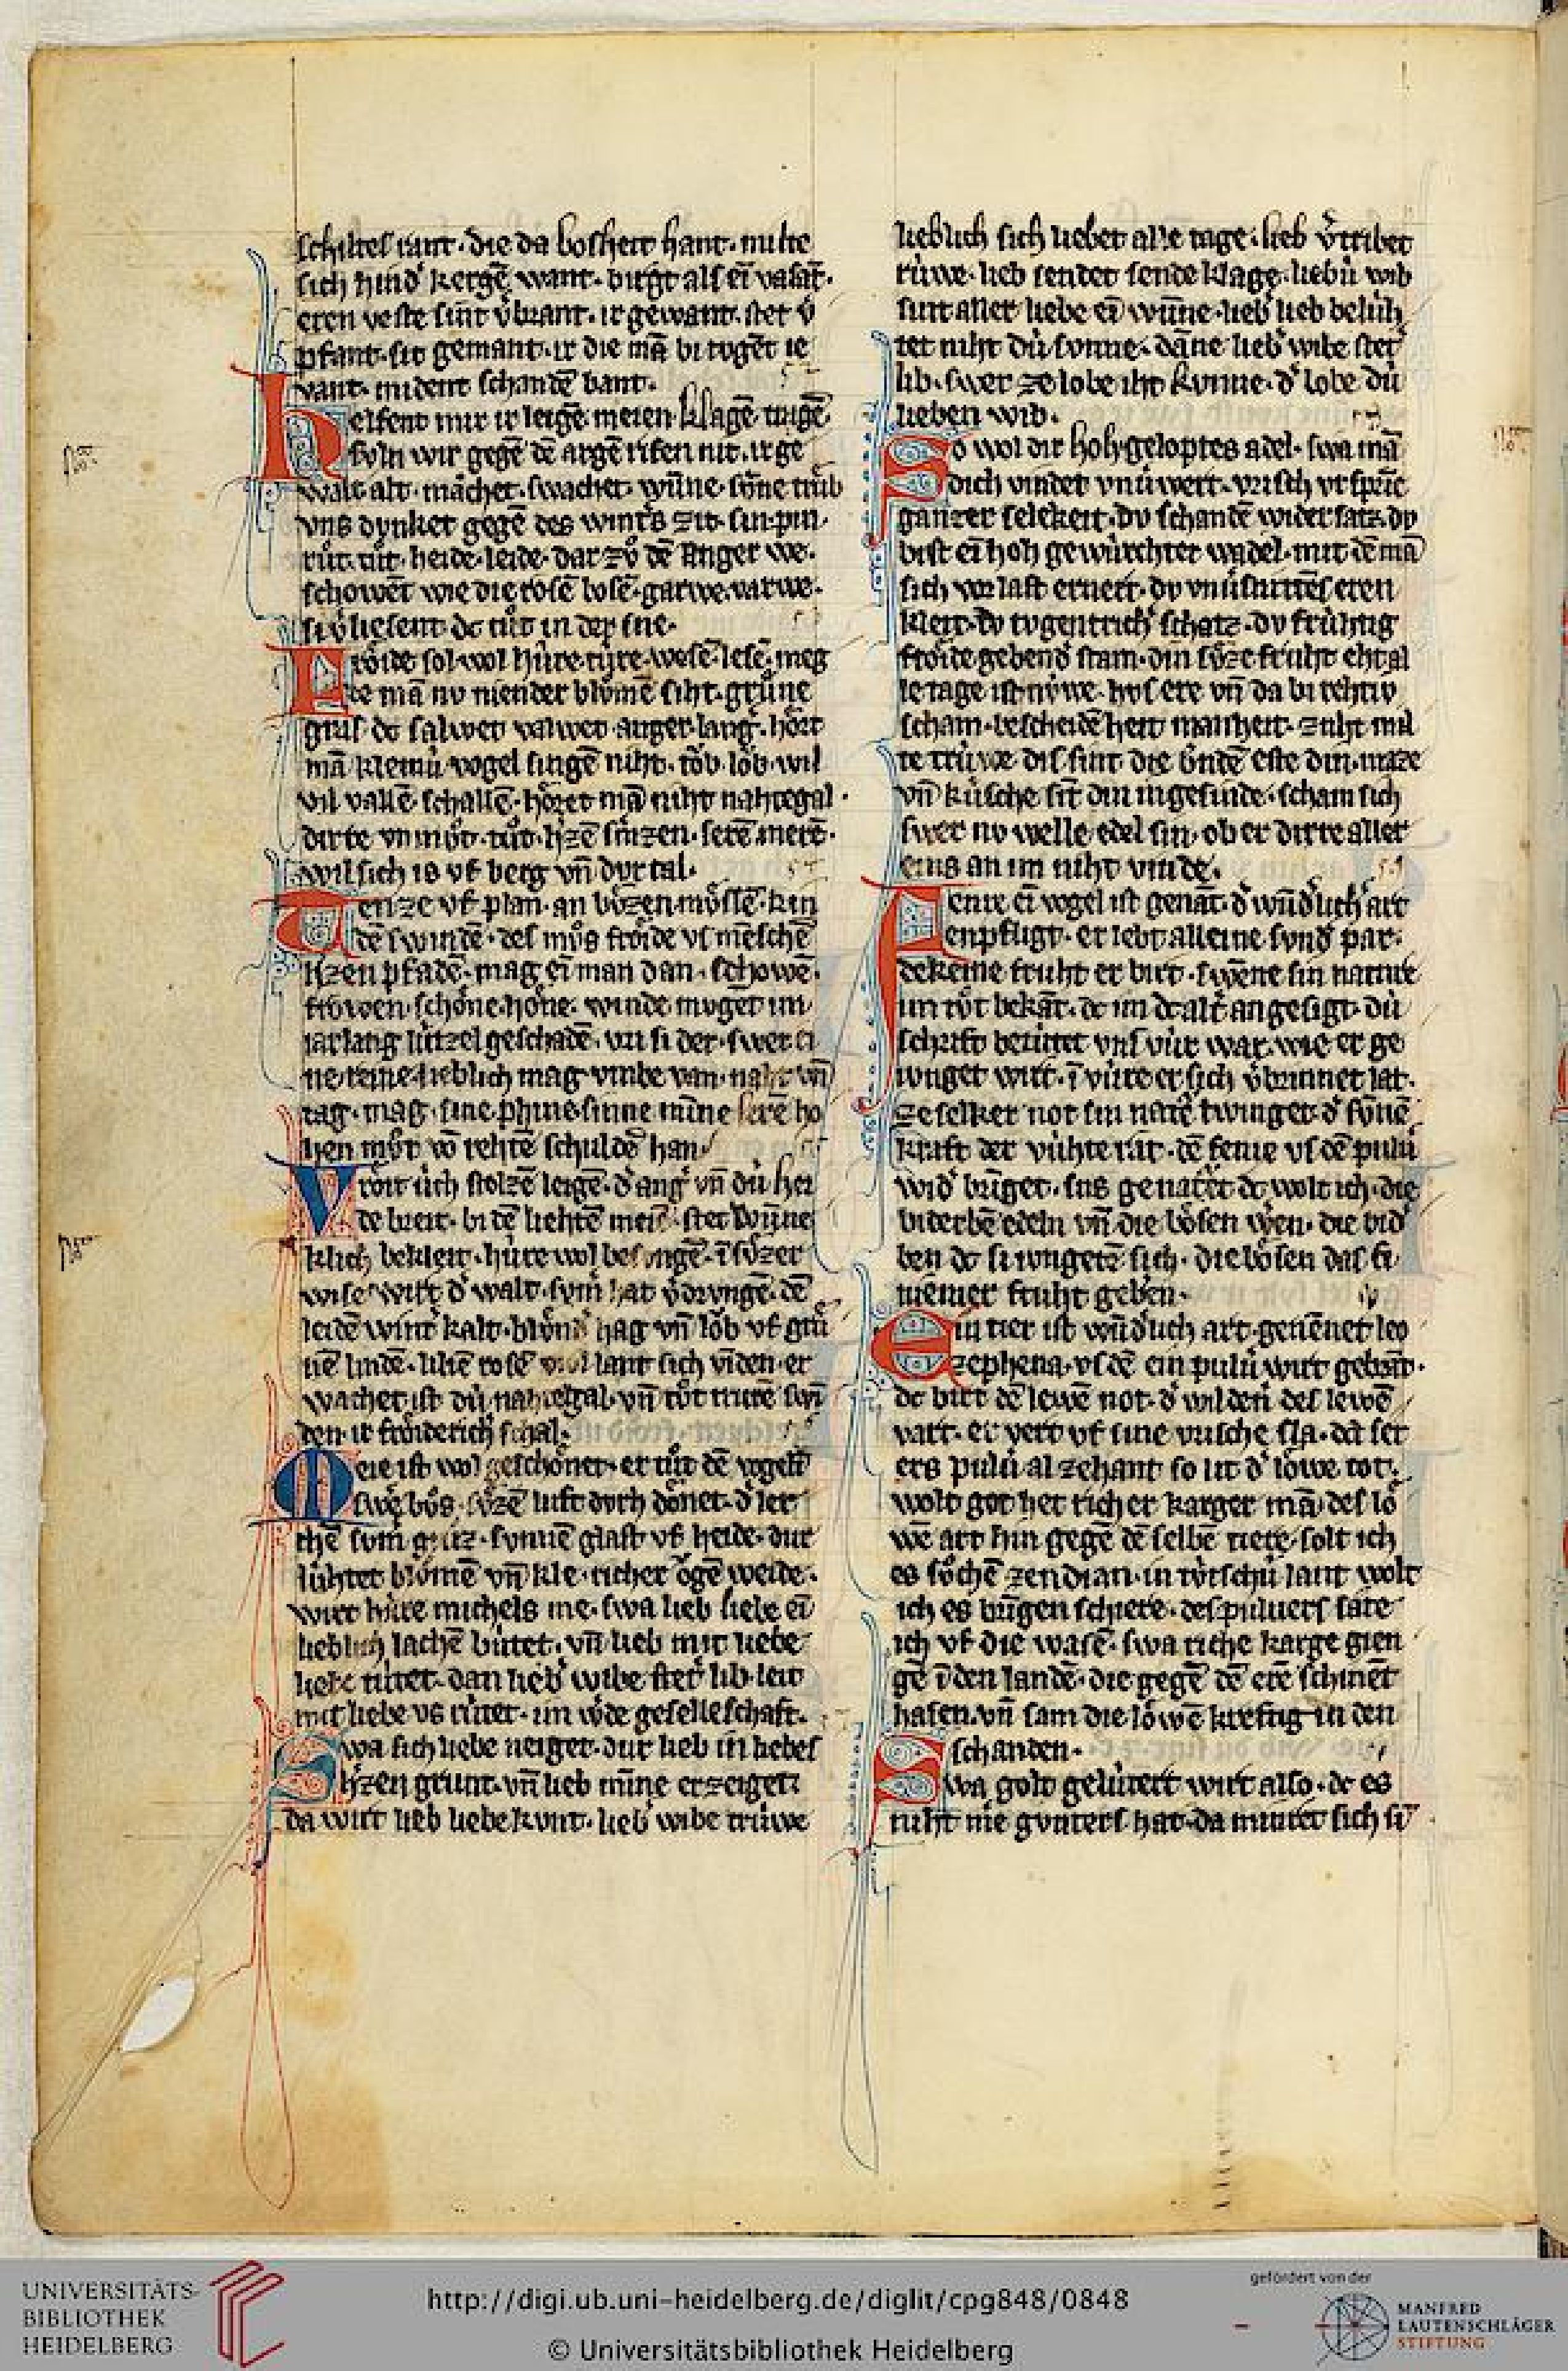 schiltes rant · die da bosheit hant · milte
sich hind̾ kergē want · birgt als eī vasāt ·
eren veste sint v̾brant · ir gewant · stet v̾
pfant · sit gemant · ir die mā bi tugēt ie
vant · mident schandē bant ·
Helfent mir ir leigē meien klagē tugē
svln wir gegē dē argē rifen nit · ir ge
walt alt · machet · swachet · wūne · sūne trůb
vns dvnket gegē des wint̾s zit · sin · pin ·
růt · tůt · heide · leide · dar zů dē anger we ·
schowēt wie die rosē bosē · garwe · varwe ·
si v̾liesent · dc tůt in der sne ·
Froͤide sol wol hure · ture · wesē · lesē · meg
te mā nv niender blůmē siht · grůne
gras · dc salwet valwet · anger · lang · hoͤrt
mā kleinu vogel singē niht · loͮb · loͮb · wil
vil vallē · schallē · hoͤret mā niht nahtegal ·
dirte vnmůt · tůt · h̾zē smzen · serē merē ·
wil sich is vf berg vn̄ dvr tal ·
Tenze vf plan · an boͮzen můssē · kin
dē swindē · des můs froͤide vs mēschē
h̾zen pfadē · mag eī man dan · schowē ·
froͮwen · schoͤne · hoͤne · winde mvgēt im
iarlang lutzel geschadē · vri si der · swer ei
ne · reine · lieblich mag vmbe van · naht vn̄
tag · mag · sine · phine · sinne · mīne serē ho
hen můt vō rehtē schuldē han
Vroͤit uch stolzē leigē · d̾ ang̾ vn̄ du hei
de breit · bi dē liehtē meiē · stet wūne
klich bekleit · hure wol besungē · ī sůzer
wise wift d̾ walt · sum̾ hat v̾drungē · dē
leidē wint̾ kalt · blůnd̾ hag vn̄ loͮb vf grů
nē lindē · lilīe rosē viol lant sich vīden · er
wachet ist du nahtegal · vn̄ tůt trurē swī
den · ir froͤiderich schal ·
Meie ist wol geschoͤnet · er tůt dē vogelī
swe bůs · sůzē luft dvrh doͤnet · d̾ ler
chē sum̾ grůz · svnnē glast vf heide · dur
luhtet blůmē vn̄ kle · richer oͮgē weide ·
wirt hure michels me · swa lieb liebe eī
lieblich lachē butet · vn̄ lieb mit liebe
liebe trutet · dan lieb̾ wibe stet̾ lib · leit
mit liebe vs rutet · im w̾de geselleschaft ·
Swa sich liebe neiget · dur lieb in liebes
h̾zen grunt · vn̄ lieb mīne erzeiget ·
da wirt lieb liebe kunt · lieb wibe truwe
lieblich sich liebet alle tage · lieb v̾tribet
ruwe · lieb sendet sende klage · liebu wib
sint aller liebe eī wūne · lieb̾ lieb beluh
tet niht du sonne · dāne lieb̾ wibe stet̾
lib · swer ze lobe iht kunne · d̾ lobe du
lieben wib ·
So wol dir hohgeloptes adel · swa mā
dich vindet vnu̾wert · vrisch vrspric
ganzer selekeit · dv schandē widersatz · dv
bist eī hoh gewurchter wadel · mit dē mā
sich vor last ernert · dv vnu̾snittēs eren
kleit · dv tvgentrich̾ schatz · dv fruhtig
froͤide gebend̾ stam · din sůze fruht eht al
le tage ist nuwe · hof ere vn̄ da bi rehtiv
scham · bescheidēheit manheit · zuht mil
te truwe · dis sint die lindē este din · maze
vn̄ kusche sīt din ingesinde · scham sich
swer nv welle edel sin · ob er dirre aller
eins an im niht vinde ·
Fenix eī vogel ist genāt · d̾ wund̾lich̾ art
enpfligt · er lebt alleine · sund̾ par ·
dekeine fruht er birt · swēne sin nature
im tůt bekāt · dc im dc alt̾ angesigt · du
schrift berittet vns vur war · wie er ge
iunget wirt · ī vure er sich v̾brinnet lat ·
ze selker not sin nat̾e twinget · d̾ sunē
kraft der vuhte rat · dē fenix vs dē pulu̾
wid̾ brīget · sus genat̾et dc wolt ich · die
biderbē edeln vn̄ die boͤsen w̾en · die bid̾
ben dc si iungetē sich · die boͤsen das si
niemer fruht geb̾en ·
Ein tier ist wund̾lich art · genēnet leo
zephena · vs dē ein pulu̾ wirt gebrāt ·
dc birt dē lewē not · d̾ wildeñ des lewē
vart · er vert vf sine vrische sla · da set
ers pulu̾ al zehant so lit d̾ loͤwe tot ·
wolt got het richer karger mā des loͤ
wē art hin gegē dē selbē tiere · solt ich
es sůchē zendian · in totschu lant wolt
ich es brīgen schiere · des puluers sate
ich vf die wasē · swa riche karge gien
gē ī den landē · die gegē dē erē schinēt
hasen · vn̄ sam die loͤwē kreftig in den
schanden ·
Swa golt gelutert wirt also · dc es
niht me gvnters hat · da minret sich sī
UNIVERSITÄTS-
BIBLIOTHEK
HEIDELBERG
http://digi.ub.uni-heidelberg.de/diglit/cpg848/0848
© Universitätsbibliothek Heidelberg
gefördert von der
MANFRED
LAUTENSCHLÄGER
STIFTUNG